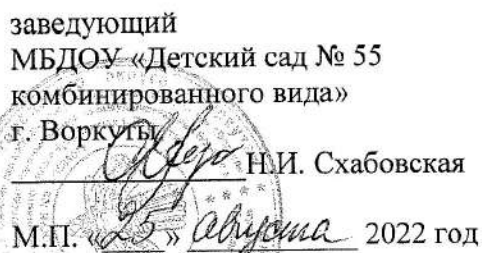 заведующий
МБДОУ «Детский сад № 55
комбинированного вида»
г. Воркуты
Н.И. Схабовская
М.П. «25» августа 2022 год